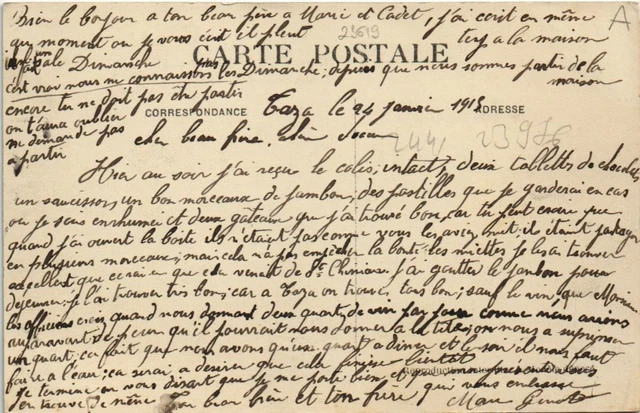 Bien le bonjour a ton beau père a Marie et Cadet, j'ai écrit en même
temp a la maison
au moment ou je vous écrit il pleut
23619
A
CARTE POSTALE
sale Dimanche
c'est vrai nous ne connaissons pas les Dimanche; depuis que nous sommes partir de la
maison
encore tu ne doit pas être partir
on t'aura oublier
ne demande pas
a partir
CORRESPONDANCE
ADRESSE
Taza le 24 janvier 1915
cher beau frère, chère soeur
2441
23976
Hier au soir j'ai reçu le colis, intact, deux tablettes de chocolat,
un saucisson, un bon morceaux de jambon, des pastilles que je garderai en cas
ou je sois enrhumé et deux gâteaux que j'ai trouvé bon, car tu peut croire que
quand j'ai ouvert la boite ils n'était pas comme vous les avez mit; il était partager
en plusieurs morceaux; mais cela n'a pas empêcher la bonté; les miettes je les ai trouver
excellent que ce soi en que cela venait de St Chinian. J'ai goutter le jambon pour
déjeuner; je l'ai trouver très bon; car a Taza on trouve tout bon; sauf le vin, que Monsieur
les officiers crois quand nous donnant deux quarts de vin par jour comme nous avions
auparavant de peur qu'il pourrait nous donner a la tête; on nous a supprimer
un quart; ça fait que nous avons qu'un quart a diner et le soir il nous faut
faire a l'eau; ça serai a desirer que cela finisse bientôt
Reproduction
Je termine en vous disant que je me porte bien et que ma présente vous
en trouve de même
Ton beau frère et ton frère
qui vous embrasse
Marc